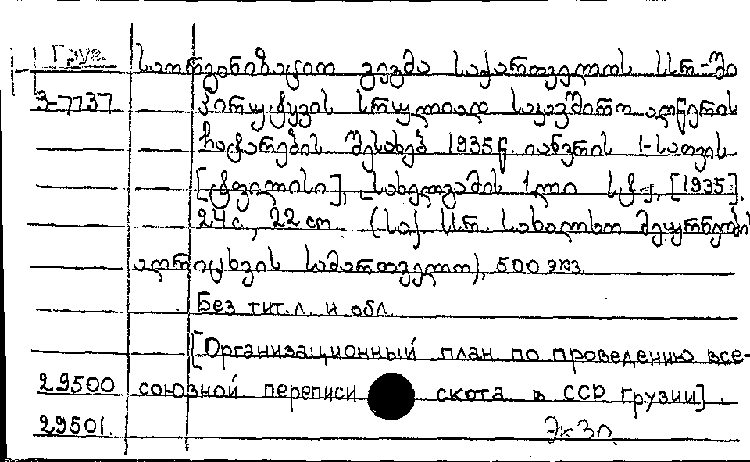 Груз. საორგანიზაციო გეგმა საქართველოს სსრ-ში
3-7737 პირუტყვის სრულიად საკავშირო აღწერის
ჩატარების შესახებ 1935 წ. იანვრის 1-სათვის
[ტფილისი], [სახელგამის 1ლი სტ.], [1935].
24 с., 22 cm. (საქ. სსრ. სახალხო მეურნეობ.
აღრიცხვის სამართველო), 500 экз.
Без тит. л. и обл.
[Организационный план по проведению все-
29500 союзной переписи скота в ССР Грузии].
29501. Эк Зл